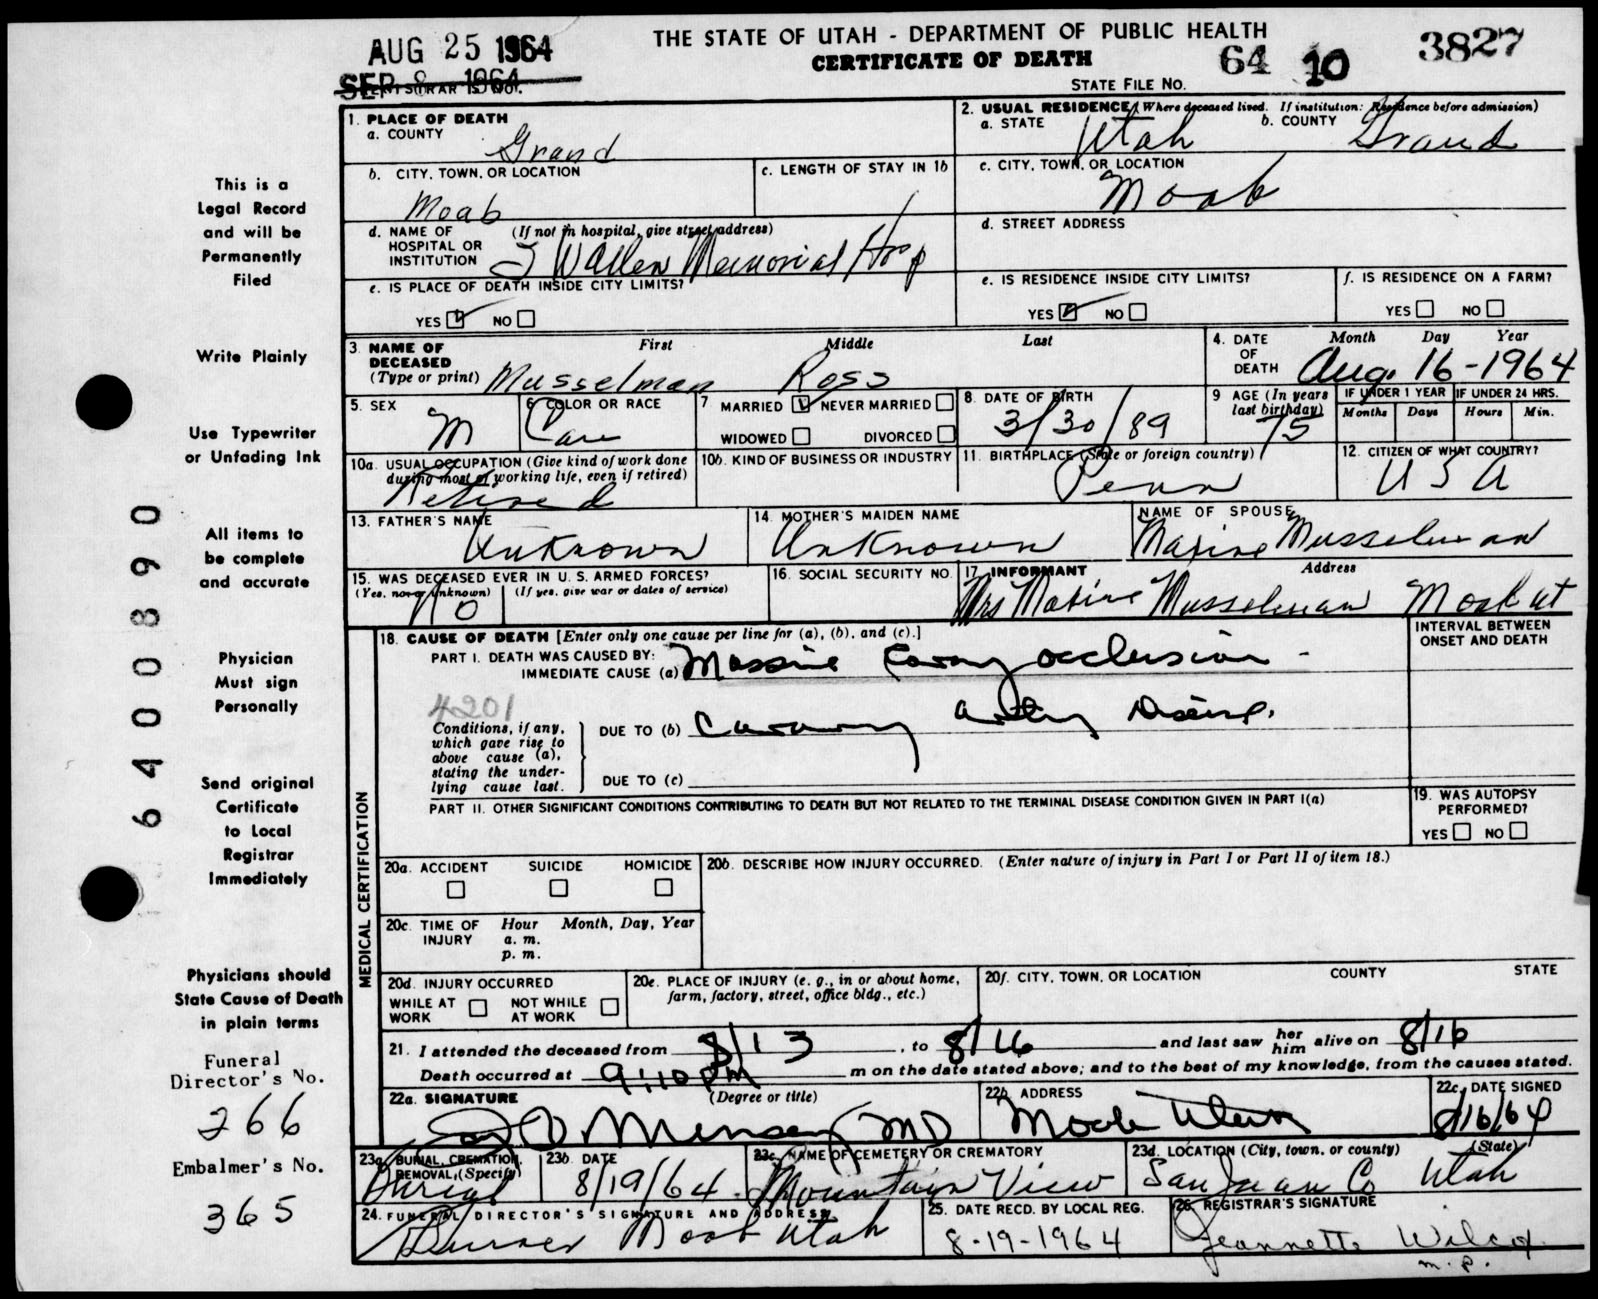 THE STATE OF UTAH - DEPARTMENT OF PUBLIC HEALTH
CERTIFICATE OF DEATH
AUG 25 1964
SEP 8 1964
REGISTRAR'S NO.
STATE FILE NO. 64 10 3827
This is a
Legal Record
and will be
Permanently
Filed
Write Plainly
Use Typewriter
or Unfading Ink
All items to
be complete
and accurate
Physician
Must sign
Personally
Send original
Certificate
to Local
Registrar
Immediately
Physicians should
State Cause of Death
in plain terms
Funeral
Director's No.
266
Embalmer's No.
365
6400890
1. PLACE OF DEATH
a. COUNTY
Grand
2. USUAL RESIDENCE (Where deceased lived. If institution: Residence before admission)
a. STATE Utah b. COUNTY Grand
b. CITY, TOWN, OR LOCATION
Moab
c. LENGTH OF STAY IN 1b
c. CITY, TOWN, OR LOCATION
Moab
d. NAME OF HOSPITAL OR INSTITUTION (If not in hospital, give street address)
Allen Memorial Hosp
d. STREET ADDRESS
e. IS PLACE OF DEATH INSIDE CITY LIMITS?
YES NO
e. IS RESIDENCE INSIDE CITY LIMITS?
YES NO
f. IS RESIDENCE ON A FARM?
YES NO
3. NAME OF DECEASED (Type or print)
First Middle Last
Musselman Ross
4. DATE OF DEATH
Month Day Year
Aug. 16-1964
5. SEX
M
6. COLOR OR RACE
Cau
7 MARRIED NEVER MARRIED
WIDOWED DIVORCED
8. DATE OF BIRTH
3/30/89
9 AGE (In years last birthday)
75
IF UNDER 1 YEAR
Months Days
IF UNDER 24 HRS.
Hours Min.
10a. USUAL OCCUPATION (Give kind of work done during most of working life, even if retired)
Retired
10b. KIND OF BUSINESS OR INDUSTRY
11. BIRTHPLACE (State or foreign country)
Penn
12. CITIZEN OF WHAT COUNTRY?
USA
13. FATHER'S NAME
Unknown
14. MOTHER'S MAIDEN NAME
Unknown
NAME OF SPOUSE
Maxine Musselman
15. WAS DECEASED EVER IN U. S. ARMED FORCES?
(Yes, no or unknown) (If yes, give war or dates of service)
No
16. SOCIAL SECURITY NO.
17. INFORMANT Address
Mrs Maxine Musselman Moab Ut
MEDICAL CERTIFICATION
18. CAUSE OF DEATH [Enter only one cause per line for (a), (b), and (c).]
PART I. DEATH WAS CAUSED BY:
IMMEDIATE CAUSE (a) Massive Coronary occlusion -
INTERVAL BETWEEN ONSET AND DEATH
4201
Conditions, if any, which gave rise to above cause (a), stating the underlying cause last.
DUE TO (b) Coronary artery Disease.
DUE TO (c)
PART II. OTHER SIGNIFICANT CONDITIONS CONTRIBUTING TO DEATH BUT NOT RELATED TO THE TERMINAL DISEASE CONDITION GIVEN IN PART I(a)
19. WAS AUTOPSY PERFORMED?
YES NO
20a. ACCIDENT SUICIDE HOMICIDE
20b. DESCRIBE HOW INJURY OCCURRED. (Enter nature of injury in Part I or Part II of item 18.)
20c. TIME OF INJURY Hour Month, Day, Year
a. m.
p. m.
20d. INJURY OCCURRED
WHILE AT WORK NOT WHILE AT WORK
20e. PLACE OF INJURY (e. g., in or about home, farm, factory, street, office bldg., etc.)
20f. CITY, TOWN, OR LOCATION COUNTY STATE
21. I attended the deceased from 8/13, to 8/16 and last saw her him alive on 8/16
Death occurred at 9:10 pm m on the date stated above; and to the best of my knowledge, from the causes stated.
22a. SIGNATURE (Degree or title)
MD
22b. ADDRESS
Moab Utah
22c. DATE SIGNED
8/16/64
23a. BURIAL, CREMATION, REMOVAL, (Specify)
Burial
23b. DATE
8/19/64
23c. NAME OF CEMETERY OR CREMATORY
Mountain View
23d. LOCATION (City, town, or county) (State)
San Juan Co Utah
24. FUNERAL DIRECTOR'S SIGNATURE AND ADDRESS
Moab Utah
25. DATE RECD. BY LOCAL REG.
8-19-1964
26. REGISTRAR'S SIGNATURE
Jeannette Wilcox
m.p.